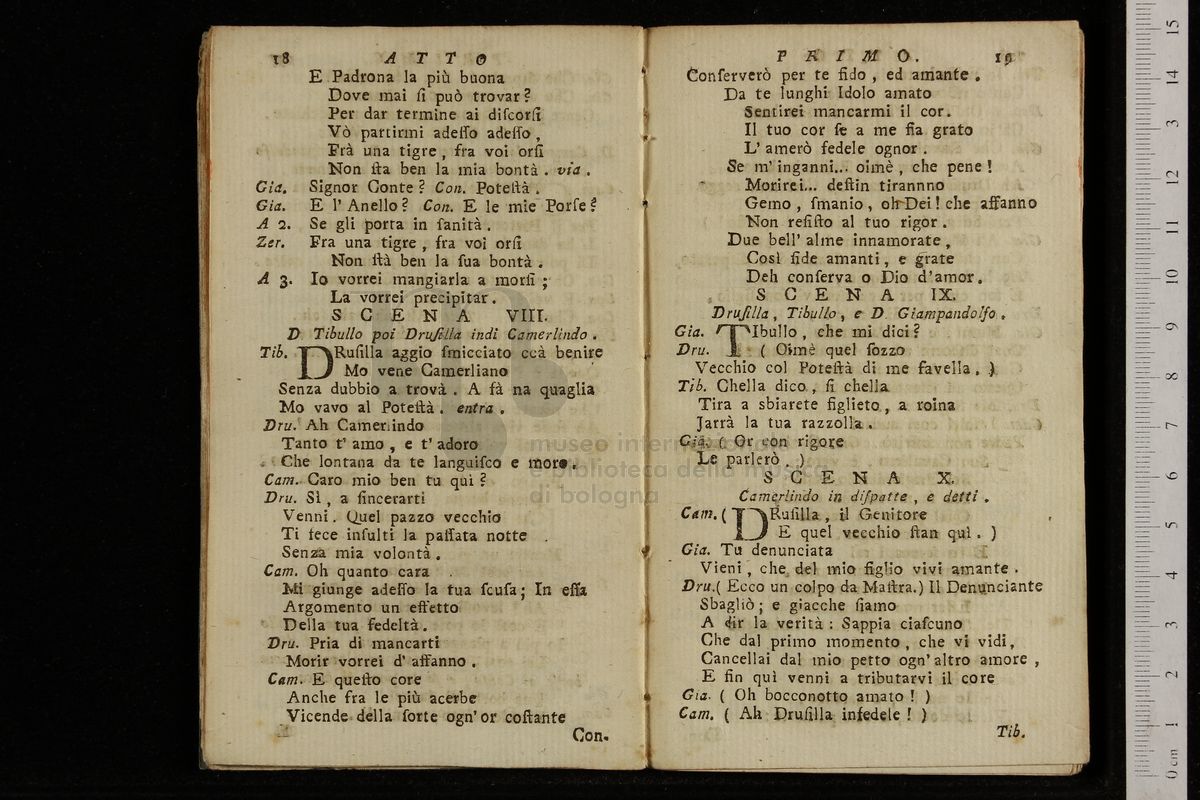 18 A T T O
E Padrona la più buona
Dove mai ſi può trovar?
Per dar termine ai diſcorſi
Vò partirmi adeſſo adeſſo,
Frà una tigre, fra voi orſi
Non ſta ben la mia bontà. via.
Gia. Signor Conte? Con. Poteſtà.
Gia. E l' Anello? Con. E le mie Porſe?
A 2. Se gli porta in ſanità.
Zer. Fra una tigre, fra voi orſi
Non ſtà ben la ſua bontà.
A 3. Io vorrei mangiarla a morſi;
La vorrei precipitar.
S C E N A VIII.
D Tibullo poi Druſilla indi Camerlindo.
Tib. DRuſilla aggio ſmicciato ccà benire
Mo vene Camerliano
Senza dubbio a trovà. A fà na quaglia
Mo vavo al Poteſtà. entra.
Dru. Ah Camerlindo
Tanto t' amo, e t' adoro
Che lontana da te languiſco e moro.
Cam. Caro mio ben tu qui?
Dru. Sì, a ſincerarti
Venni. Quel pazzo vecchio
Ti fece inſulti la paſſata notte
Senza mia volontà.
Cam. Oh quanto cara
Mi giunge adeſſo la tua ſcuſa; In eſſa
Argomento un effetto
Della tua fedeltà.
Dru. Pria di mancarti
Morir vorrei d' affanno.
Cam. E queſto core
Anche fra le più acerbe
Vicende della ſorte ogn' or coſtante
Con.
P R I M O. 19
Conſerverò per te fido, ed amante.
Da te lunghi Idolo amato
Sentirei mancarmi il cor.
Il tuo cor ſe a me fia grato
L' amerò fedele ognor.
Se m' inganni... oimè, che pene!
Morirei... deſtin tirannno
Gemo, ſmanio, oh Dei! che affanno
Non reſiſto al tuo rigor.
Due bell' alme innamorate,
Così fide amanti, e grate
Deh conſerva o Dio d'amor.
S C E N A IX.
Druſilla, Tibullo, e D. Giampandolfo.
Gia. TIbullo, che mi dici?
Dru. ( Oimè quel ſozzo
Vecchio col Poteſtà di me favella. )
Tib. Chella dico, ſi chella
Tira a sbiarete figlieto, a roina
Jarrà la tua razzolla.
Gia. ( Or con rigore
Le parlerò. )
S C E N A X.
Camerlindo in diſpatte, e detti.
Cam. ( DRuſilla, il Genitore
E quel vecchio ſtan quì. )
Gia. Tu denunciata
Vieni, che del mio figlio vivi amante.
Dru.( Ecco un colpo da Maſtra.) Il Denunciante
Sbagliò; e giacche ſiamo
A dir la verità: Sappia ciaſcuno
Che dal primo momento, che vi vidi,
Cancellai dal mio petto ogn' altro amore,
E fin quì venni a tributarvi il core
Gia. ( Oh bocconotto amato! )
Cam. ( Ah Druſilla infedele! )
Tib.
museo internazionale
e biblioteca della musica
di bologna
0 cm 1 2 3 4 5 6 7 8 9 10 11 12 13 14 15